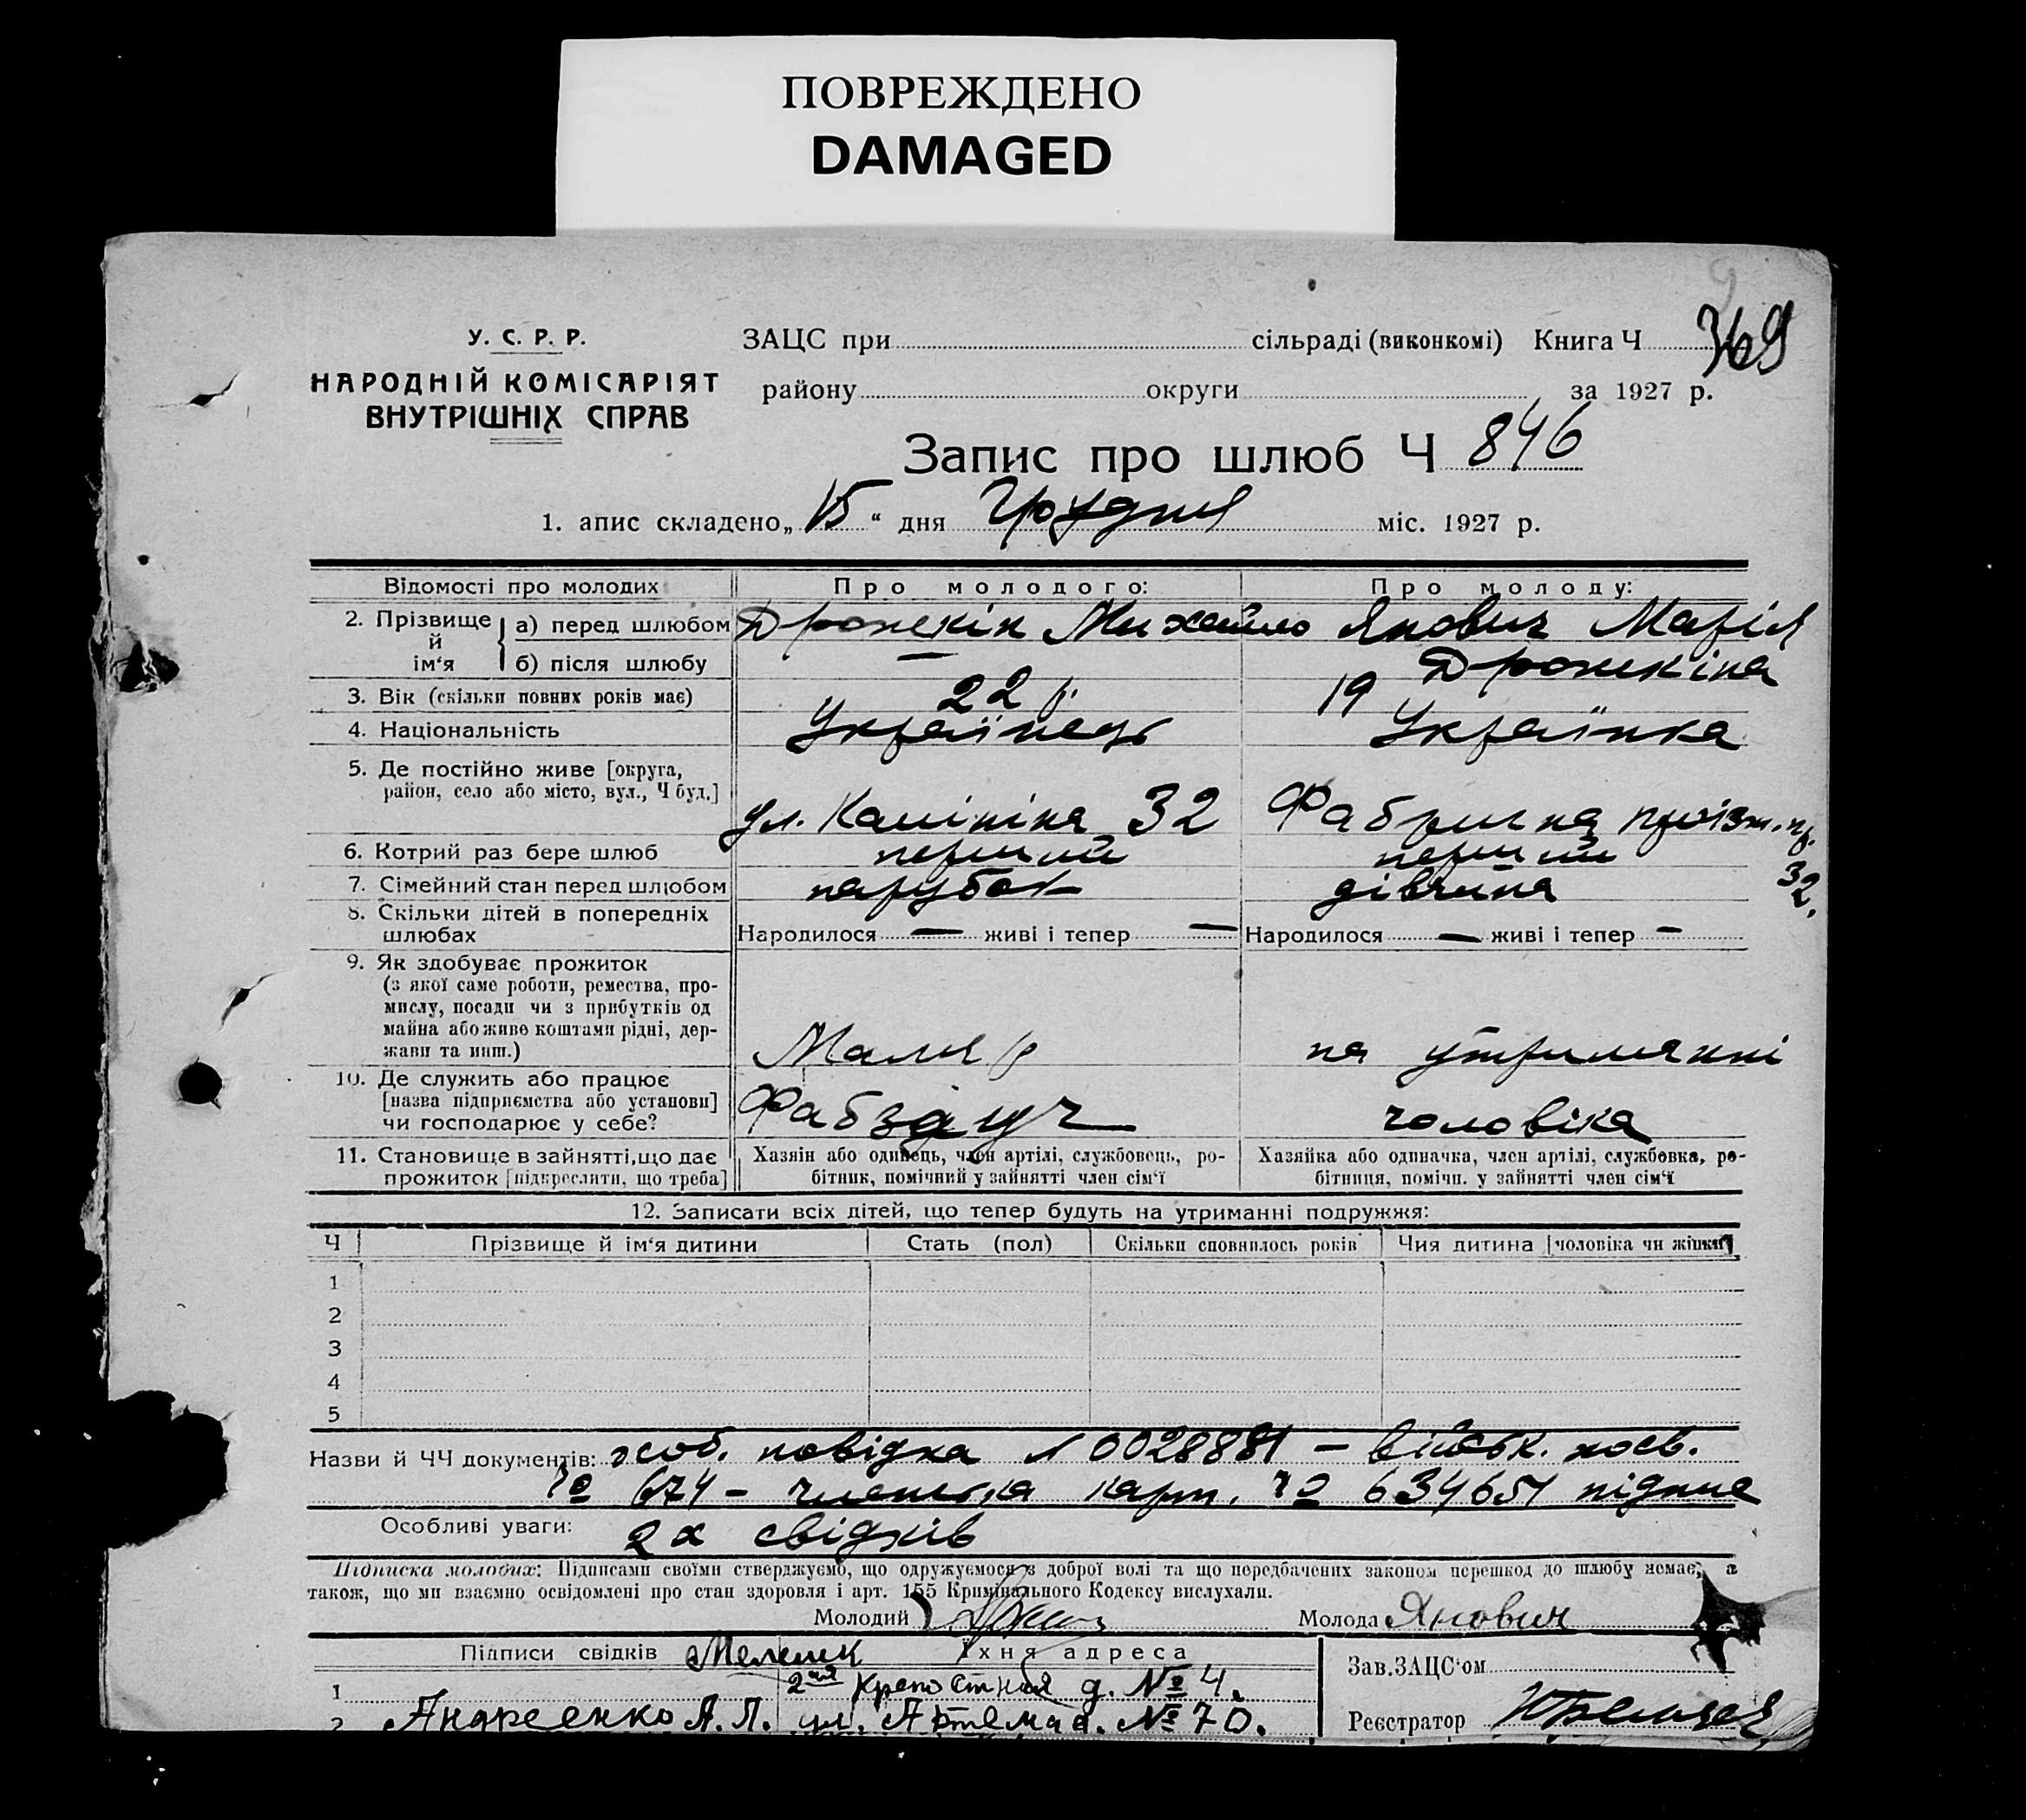 ПОВРЕЖДЕНО
DAMAGED
369
У. С. Р. Р.
НАРОДНІЙ КОМІСАРІЯТ
ВНУТРІШНІХ СПРАВ
ЗАЦС при сільраді (виконкомі) Книга Ч
району округи за 1927 р.
Запис про шлюб Ч 846
1. апис складено „15“ дня Грудня міс. 1927 р.
Відомості про молодих Про молодого: Про молоду:
2. Прізвище й ім‘я а) перед шлюбом Дронекін Михайло Янович Марія
б) після шлюбу — Дронекіна
3. Вік (скільки повних років має) 22 р. 19
4. Національність Українець Українка
5. Де постійно живе [округа,
район, село або місто, вул., Ч буд.] ул. Калініна 32 Фабрична 32.
6. Котрий раз бере шлюб перший перший
7. Сімейний стан перед шлюбом парубок дівчина
8. Скільки дітей в попередніх
шлюбах Народилося — живі і тепер — Народилося — живі і тепер —
9. Як здобуває прожиток
(з якої саме роботи, ремества, про-
мислу, посади чи з прибутків од
майна або живе коштами рідні, дер-
жави та инш.) Маляр на утриманні
10. Де служить або працює
[назва підприємства або установи]
чи господарює у себе? Фабзауч чоловіка
11. Становище в зайнятті, що дає
прожиток [підкреслити, що треба]
Хазяін або одинець, член артілі, службовець, ро-
бітник, помічний у зайнятті член сім‘ї
Хазяйка або одиначка, член артілі, службовка, ро-
бітниця, помічн. у зайнятті член сім‘ї
12. Записати всіх дітей, що тепер будуть на утриманні подружжя:
Ч Прізвище й ім‘я дитини Стать (пол) Скільки сповнилось років Чия дитина [чоловіка чи жінки]
1
2
3
4
5
Назви й ЧЧ документів: особ. повідка 0028881 – військ. посв.
№ 674 – членська карт. № 634654 підпис
Особливі уваги: 2х свідків
Підписка молодих: Підписами своїми стверджуємо, що одружуємося з доброї волі та що передбачених законом перешкод до шлюбу немає, а
також, що ми взаємно освідомлені про стан здоровля і арт. 155 Кримінального Кодексу вислухали.
Молодий Молода Янович
Підписи свідків Їхня адреса
Зав. ЗАЦС‘ом
1 2ая Крепостная д. № 4.
2 Андреенко А. П. ул. Артема д. № 70.
Реєстратор